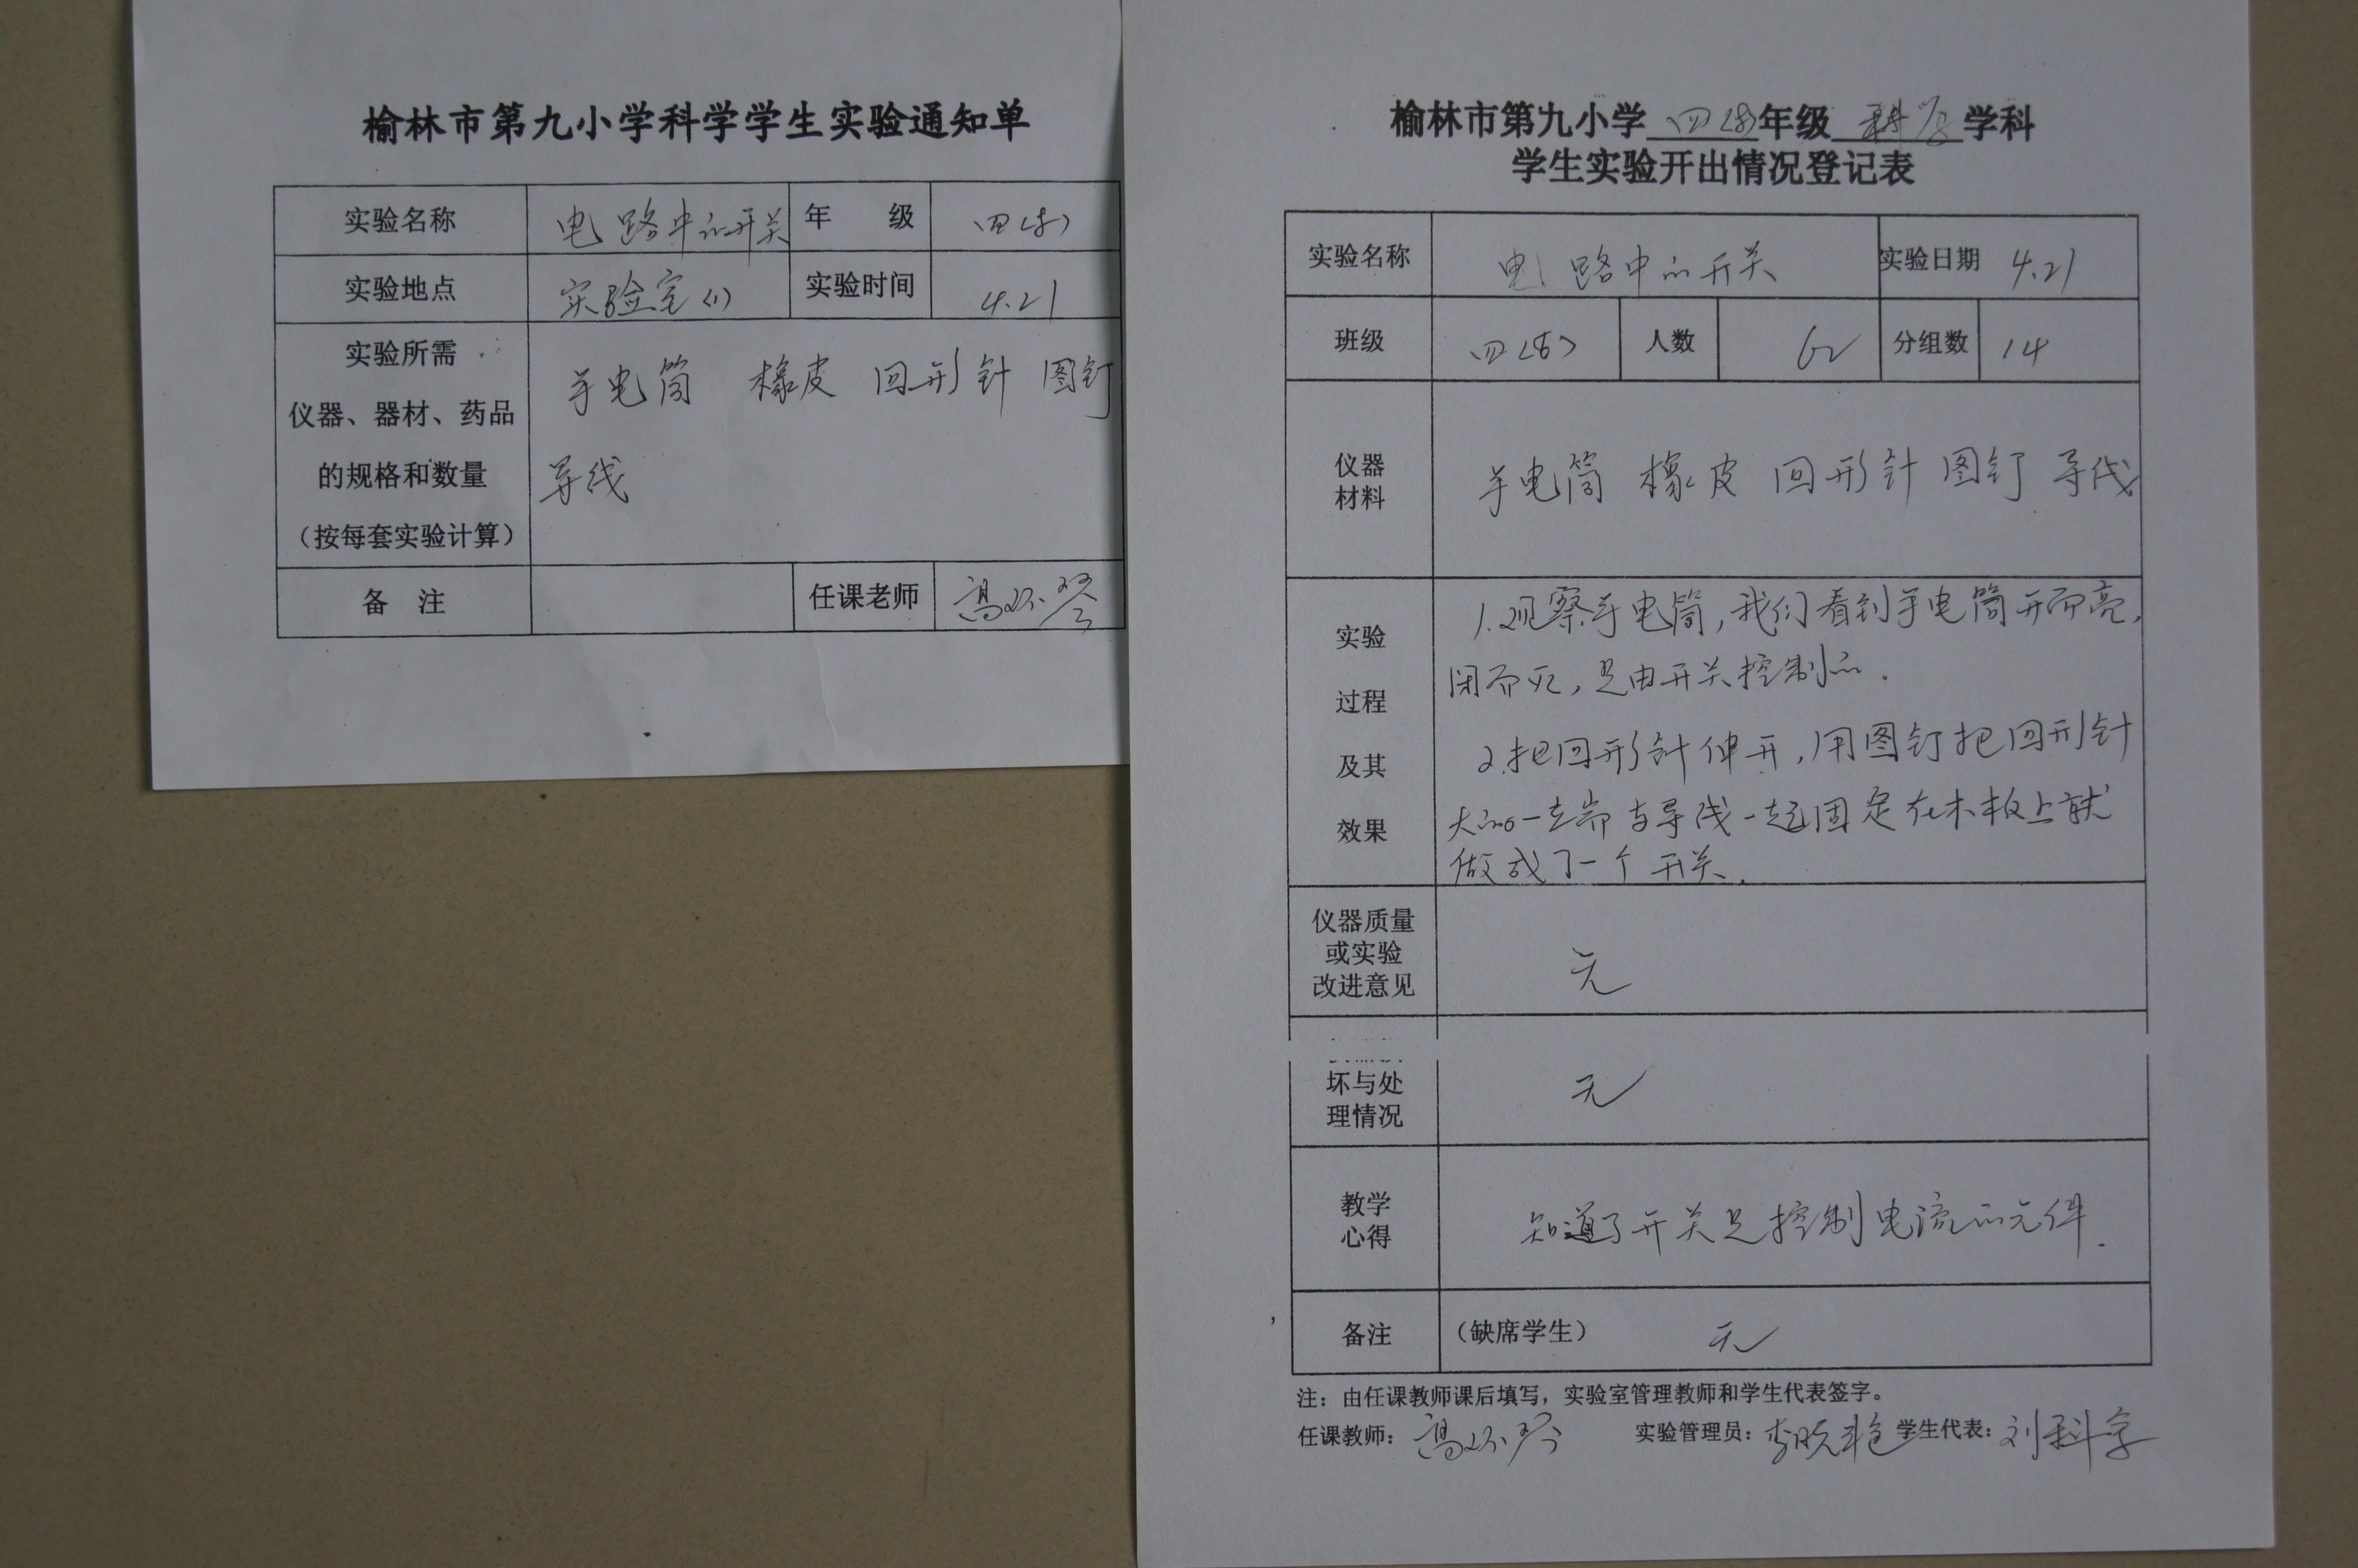 榆林市第九小学科学学生实验通知单
实验名称 电路中的开关 年 级 四(5)
实验地点 实验室(1) 实验时间 4.21
实验所需
仪器、器材、药品
的规格和数量
（按每套实验计算）
手电筒 橡皮 回形针 图钉
导线
备 注 任课老师 高
榆林市第九小学 四(5) 年级 科学 学科
学生实验开出情况登记表
实验名称 电路中的开关 实验日期 4.21
班级 四(5) 人数 62 分组数 14
仪器
材料
手电筒 橡皮 回形针 图钉 导线
实验
过程
及其
效果
1.观察手电筒,我们看到手电筒开而亮,
闭而灭,是由开关控制的.
2.把回形针伸开,用图钉把回形针
大的一端与导线一起固定在木板上就
做成了一个开关.
仪器质量
或实验
改进意见
无
坏与处
理情况
无
教学
心得
知道了开关是控制电流的元件.
备注 （缺席学生） 无
注：由任课教师课后填写，实验室管理教师和学生代表签字。
任课教师： 高 实验管理员：李晓艳 学生代表：刘科宇